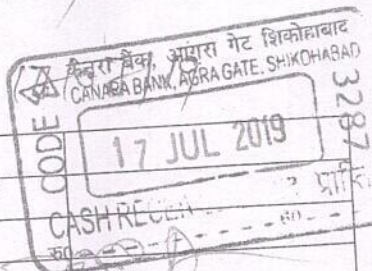 केनरा बैंक, आगरा गेट शिकोहाबाद
CANARA BANK, AGRA GATE. SHIKOHABAD
CODE
3287
17 JUL 2019
CASH RECEI
रु०